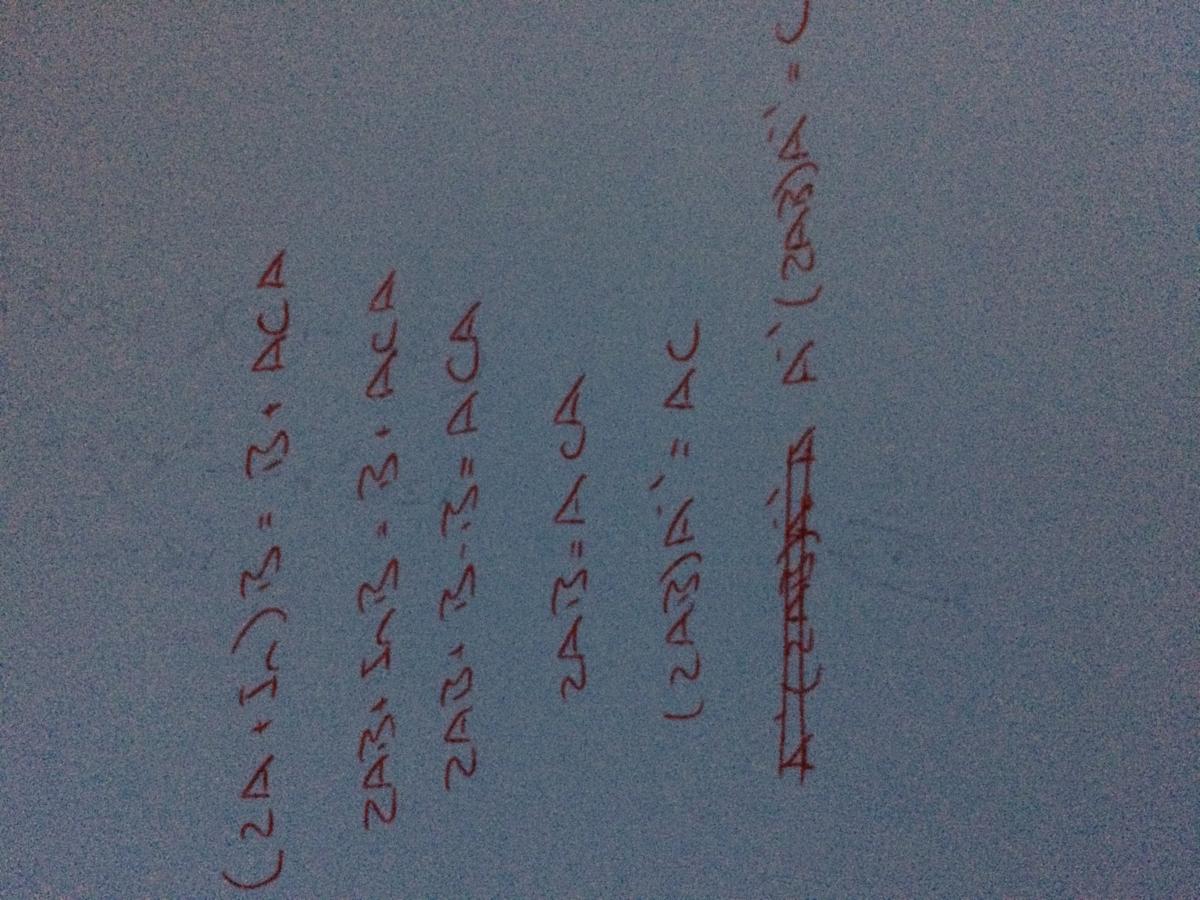 (2A + In)B = B + ACA
2AB + InB = B + ACA
2AB + B - B = ACA
2AB = ACA
(2AB)A⁻¹ = AC
A⁻¹(2AB)A⁻¹ = C